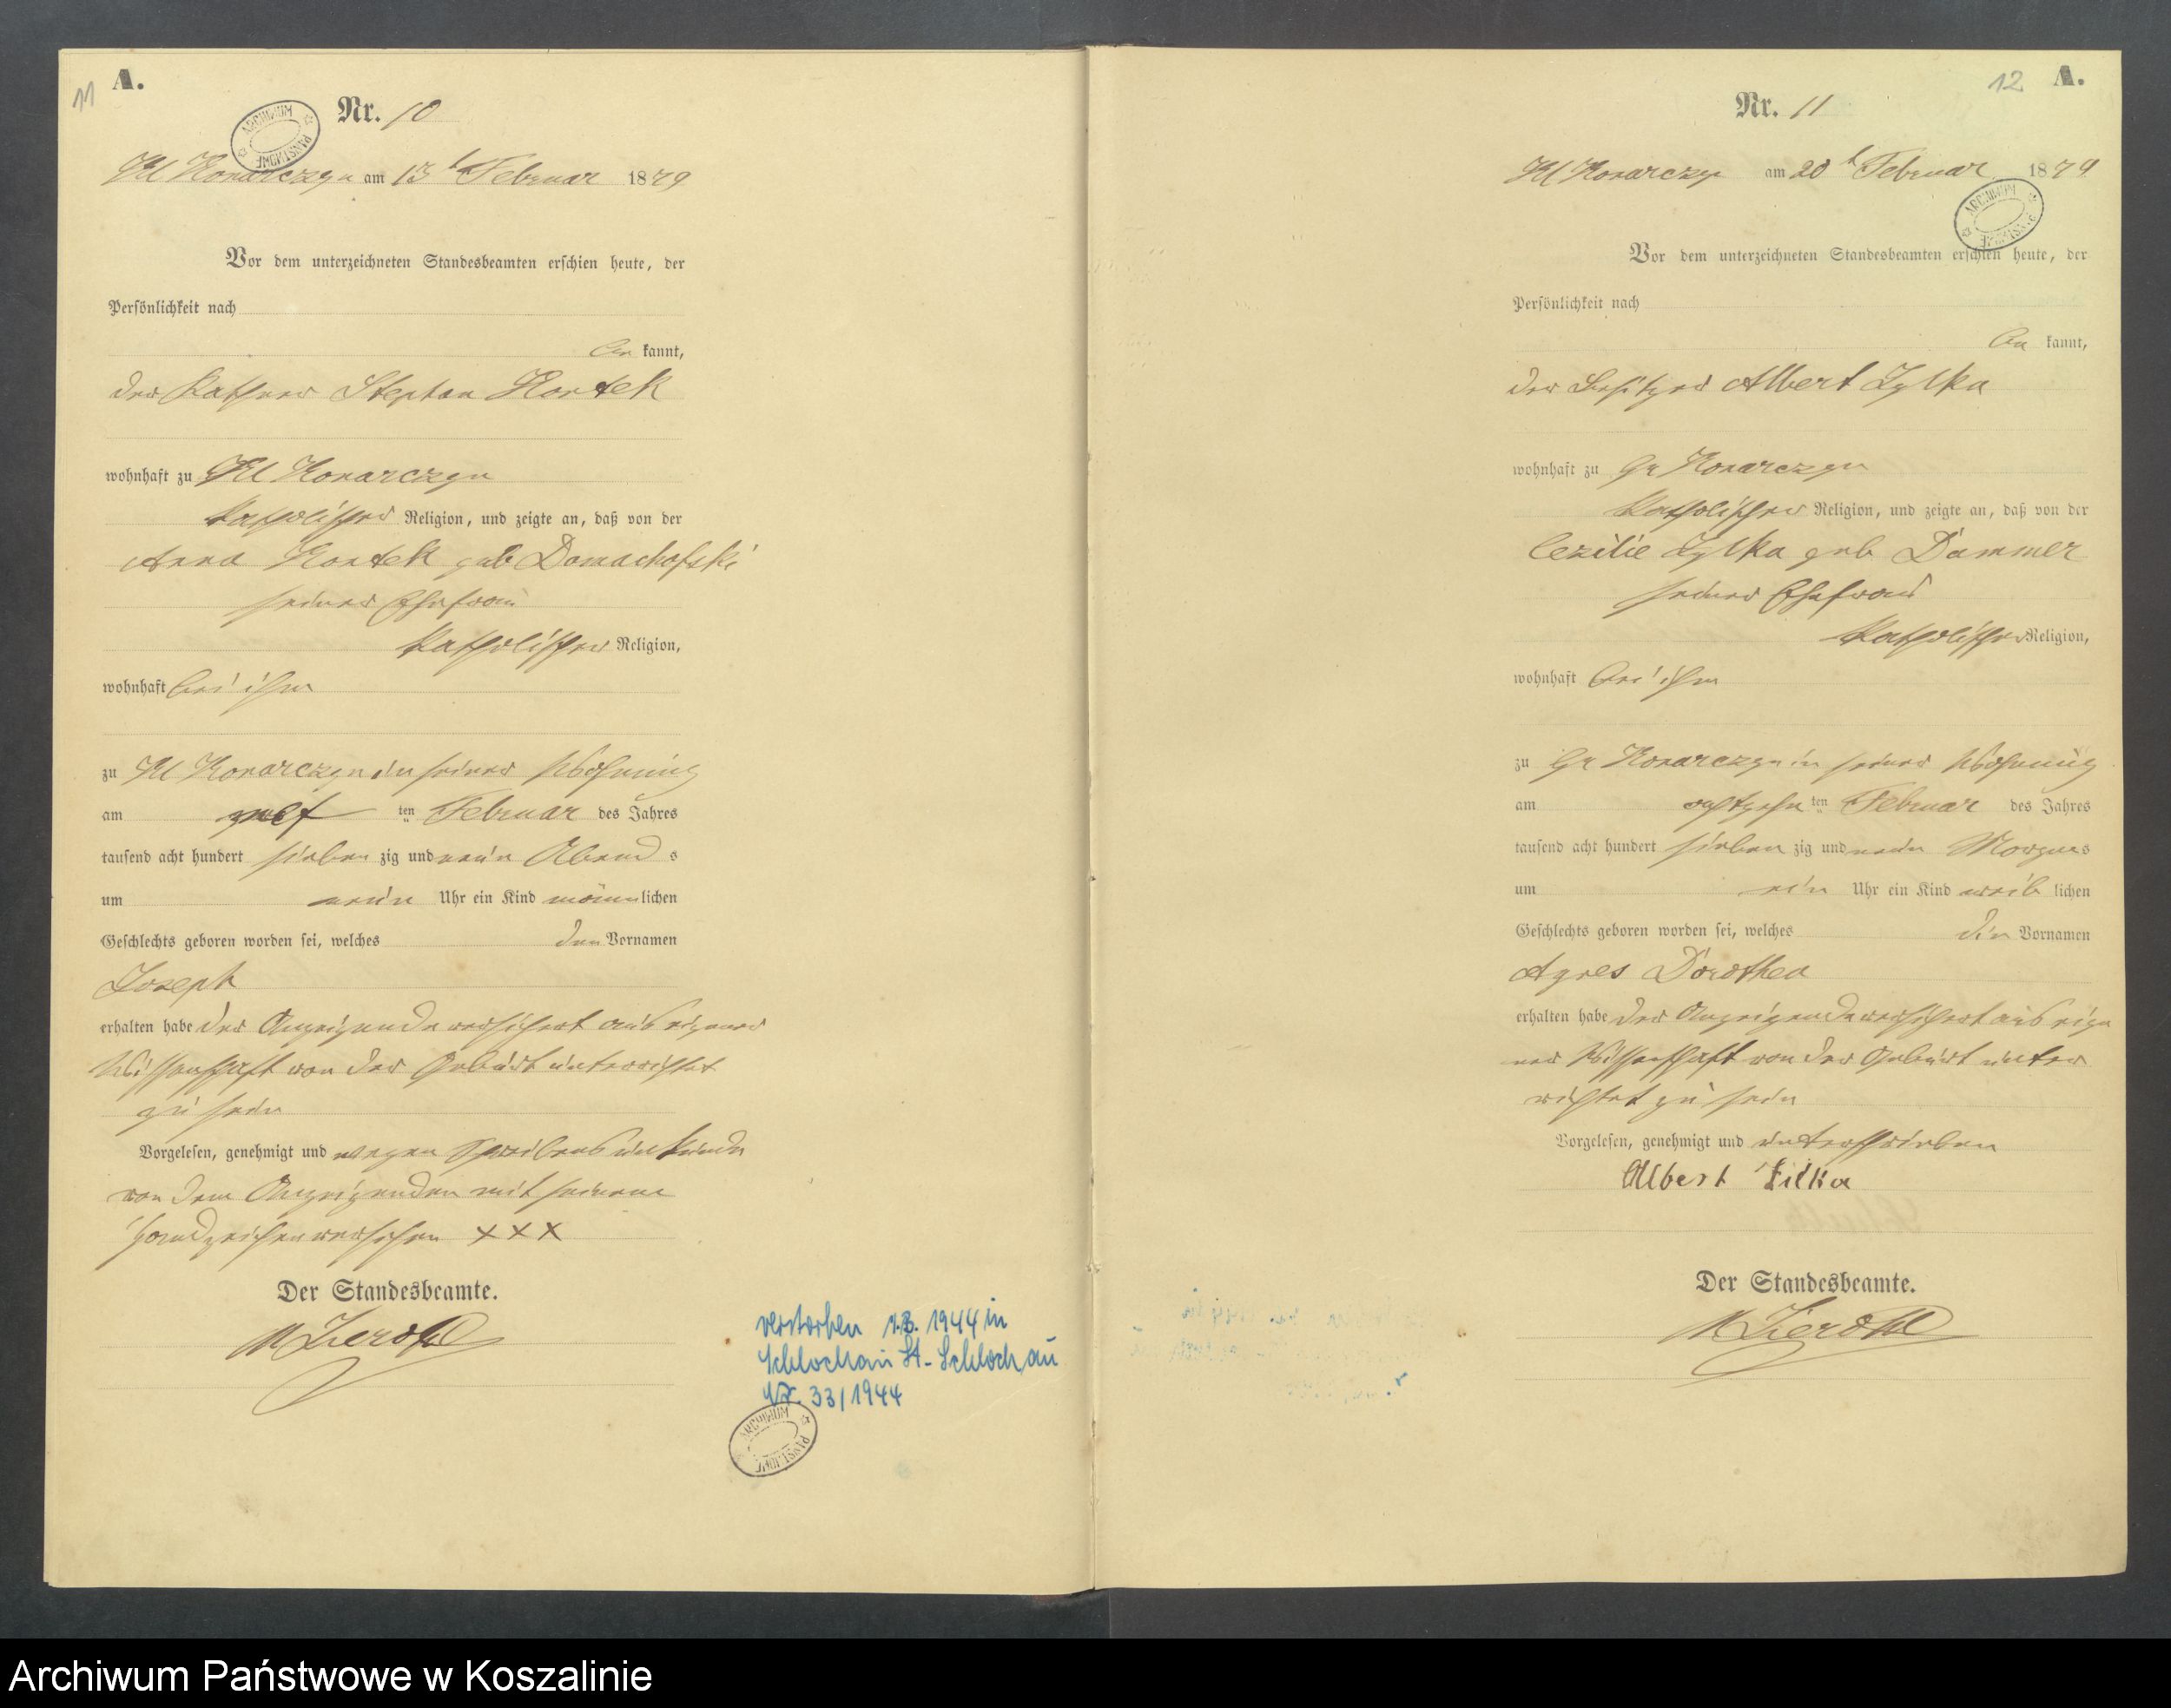 11
A.
Nr. 10
ARCHIWUM PAŃSTWOWE
Kl Konarczyn am 13t Februar 1879
Vor dem unterzeichneten Standesbeamten erschien heute, der
Persönlichkeit nach
be kannt,
der Kathner Stephan Kontek
wohnhaft zu Kl Konarczyn
katholischer Religion, und zeigte an, daß von der
Anna Kontek geb Domachofski
seiner Ehefrau
katholischer Religion,
wohnhaft bei ihm
zu Kl Konarczyn in seiner Wohnung
am ten Februar des Jahres
tausend acht hundert sieben zig und neun Abend s
um neun Uhr ein Kind männ lichen
Geschlechts geboren worden sei, welches den Vornamen
Joseph
erhalten habe der Anzeigende versichert aus eigener
Wissenschaft von der Geburt unterrichtet
zu sein
Vorgelesen, genehmigt und wegen Schreibensunkunde
von dem Anzeigenden mit seinem
Handzeichen versehen XXX
Der Standesbeamte.
verstorben 1944 in
Schlochau St-Schlochau
Nr. 33/1944
ARCHIWUM PAŃSTWOWE
12
A.
Nr. 11
Kl Konarczyn am 20t Februar 1879
ARCHIWUM PAŃSTWOWE
Vor dem unterzeichneten Standesbeamten erschien heute, der
Persönlichkeit nach
be kannt,
der Besitzer Albert Zylka
wohnhaft zu Gr Konarczyn
katholischer Religion, und zeigte an, daß von der
Cezilie Zylka geb Dammer
seiner Ehefrau
katholischer Religion,
wohnhaft bei ihm
zu Gr Konarczyn in seiner Wohnung
am achtzehn ten Februar des Jahres
tausend acht hundert sieben zig und neun Morgens
um ein Uhr ein Kind weib lichen
Geschlechts geboren worden sei, welches die Vornamen
Agnes Dorothea
erhalten habe der Anzeigende versichert aus eige
ner Wissenschaft von der Geburt unter
richtet zu sein
Vorgelesen, genehmigt und unterschrieben
Albert Zilka
Der Standesbeamte.
Archiwum Państwowe w Koszalinie